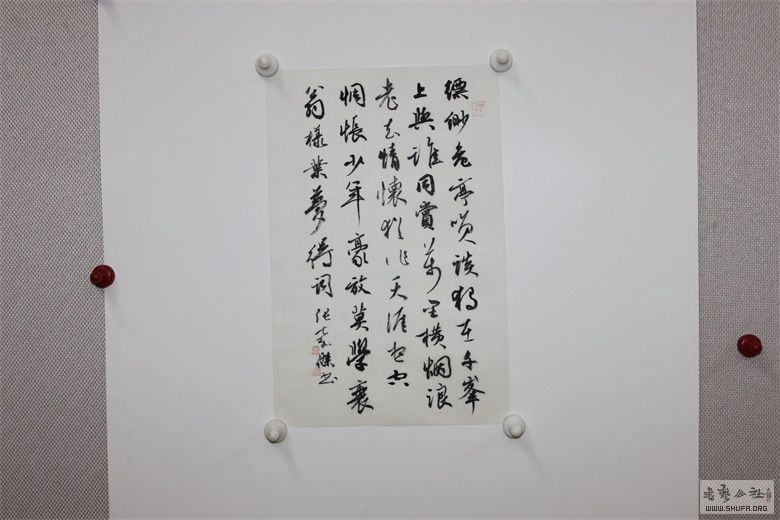 缥缈危亭笑谈独在千峰
上与谁同赏万里横烟浪
老去情怀犹作天涯想空
惆怅少年豪放莫学衰
翁样叶梦得词 张

书艺公社
WWW.SHUFA.ORG